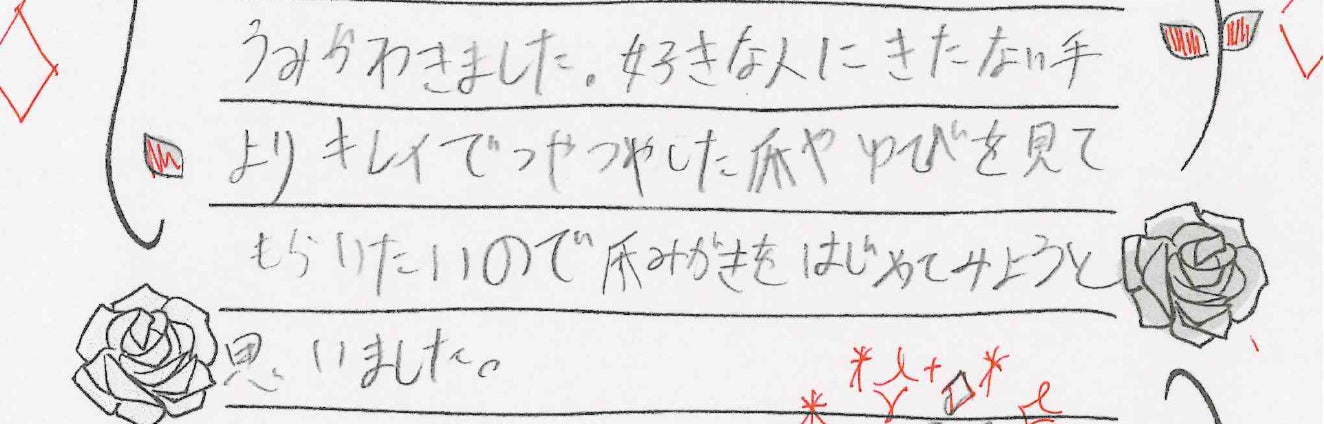 うみがわきました。好きな人にきたない手
よりキレイでつやつやした爪やゆびを見て
もらいたいので爪みがきをはじめてみようと
思いました。